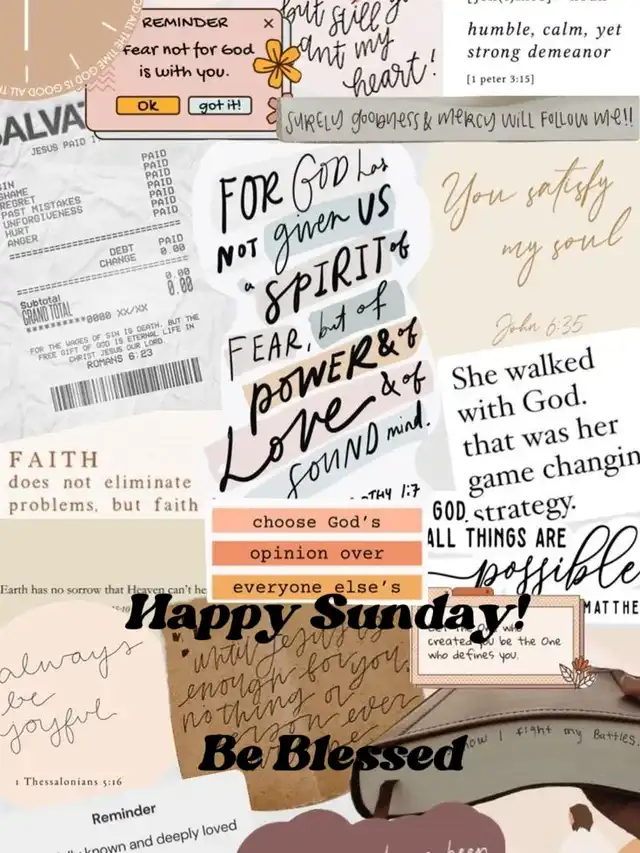 GOD IS GOOD ALL THE TIME
REMINDER
fear not for God
is with you.
Ok
got it!
but still you
want my
heart!
humble, calm, yet
strong demeanor
[1 peter 3:15]
SURELY GOODNESS & MERCY WILL FOLLOW ME!!
SALVAT
JESUS PAID I
PAID
SIN PAID
SHAME PAID
REGRET PAID
PAST MISTAKES PAID
UNFORGIVENESS PAID
HURT PAID
ANGER
DEBT PAID
CHANGE 0.00
Subtotal 0.00
GRAND TOTAL 0.00
**********0000 XX/XX
FOR THE WAGES OF SIN IS DEATH, BUT THE
FREE GIFT OF GOD IS ETERNAL LIFE IN
CHRIST JESUS OUR LORD.
ROMANS 6:23
FOR GOD has
NOT given US
a SPIRIT of
FEAR, but of
POWER & of
Love & of
SOUND mind.
OTHY 1:7
You satisfy
my soul
John 6:35
She walked
with God.
that was her
game changin
strategy.
FAITH
does not eliminate
problems, but faith
choose God's
opinion over
everyone else's
GOD
ALL THINGS ARE
possible
MATTHE
Earth has no sorrow that Heaven can't he
Happy Sunday!
created you be the One
who defines you.
always
be
joyful
1 Thessalonians 5:16
until Jesus is
enough for you,
nothing or
person ever
Be Blessed
how I fight my Battles.
Reminder
known and deeply loved
been